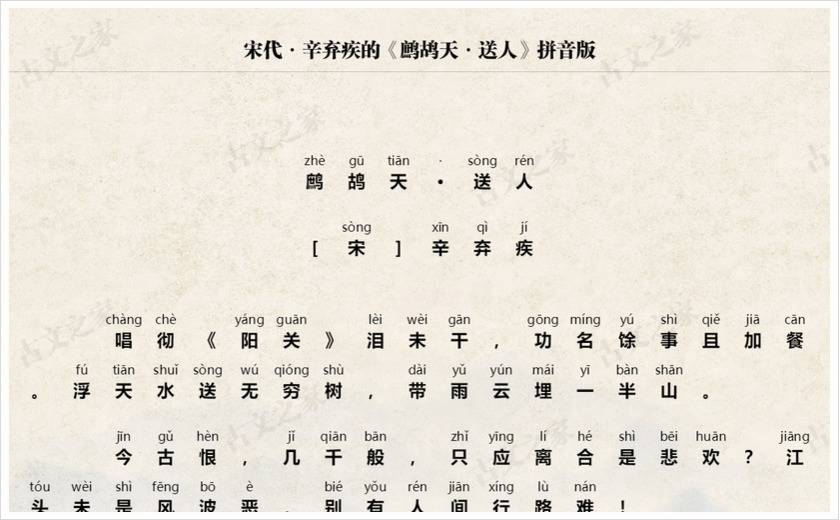 宋代·辛弃疾的《鹧鸪天·送人》拼音版
zhè gū tiān · sòng rén
鹧鸪天·送人
sòng xīn qì jí
[宋]辛弃疾
chàng chè yáng guān lèi wèi gān gōng míng yú shì qiě jiā cān
唱彻《阳关》泪未干,功名馀事且加餐
fú tiān shuǐ sòng wú qióng shù dài yǔ yún mái yī bàn shān
。浮天水送无穷树,带雨云埋一半山。
jīn gǔ hèn jǐ qiān bān zhǐ yīng lí hé shì bēi huān jiāng
今古恨,几千般,只应离合是悲欢?江
tóu wèi shì fēng bō è bié yǒu rén jiān xíng lù nán
头未是风波恶,别有人间行路难!
古文之家
古文之家
古文之家
古文之家
古文之家
古文之家
古文之家
古文之家